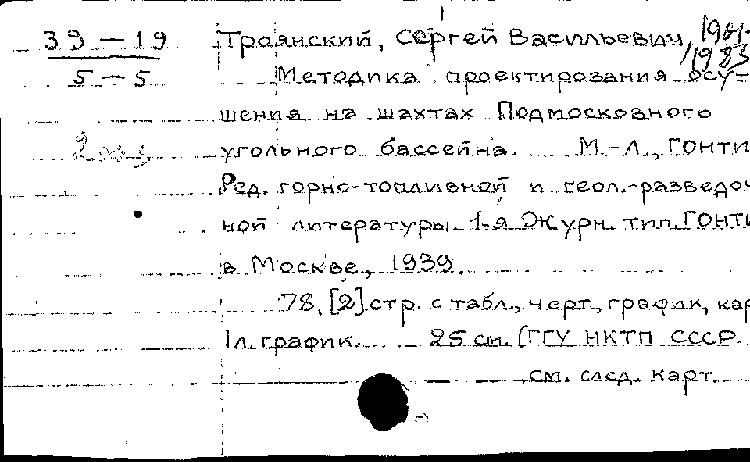 39 — 19
5 — 5
2 экз
Троянский, Сергей Васильевич, 1901-
1983
Методика проектирования осу-
шения на шахтах Подмосковного
угольного бассейна. М.-Л., ГОНТИ
Ред. горно-топливной и геол.-разведоч
ной литературы 1-я Журн. тип. ГОНТИ
в Москве, 1939.
78, [2] стр. с табл., черт., график, кар
1 л. график. 25 см. (ГГУ НКТП СССР.
см. след. карт.